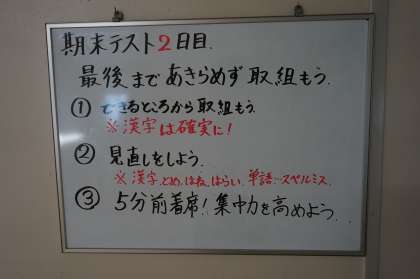 期末テスト2日目.
最後まであきらめず取組もう.
① できるところから取組もう.
※漢字は確実に!
② 見直しをしよう.
※漢字、とめ、はね、はらい. 単語…スペルミス.
③ 5分前着席! 集中力を高めよう.